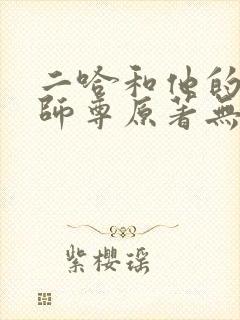 二哈和他的
師尊原著無
紫櫻瑶